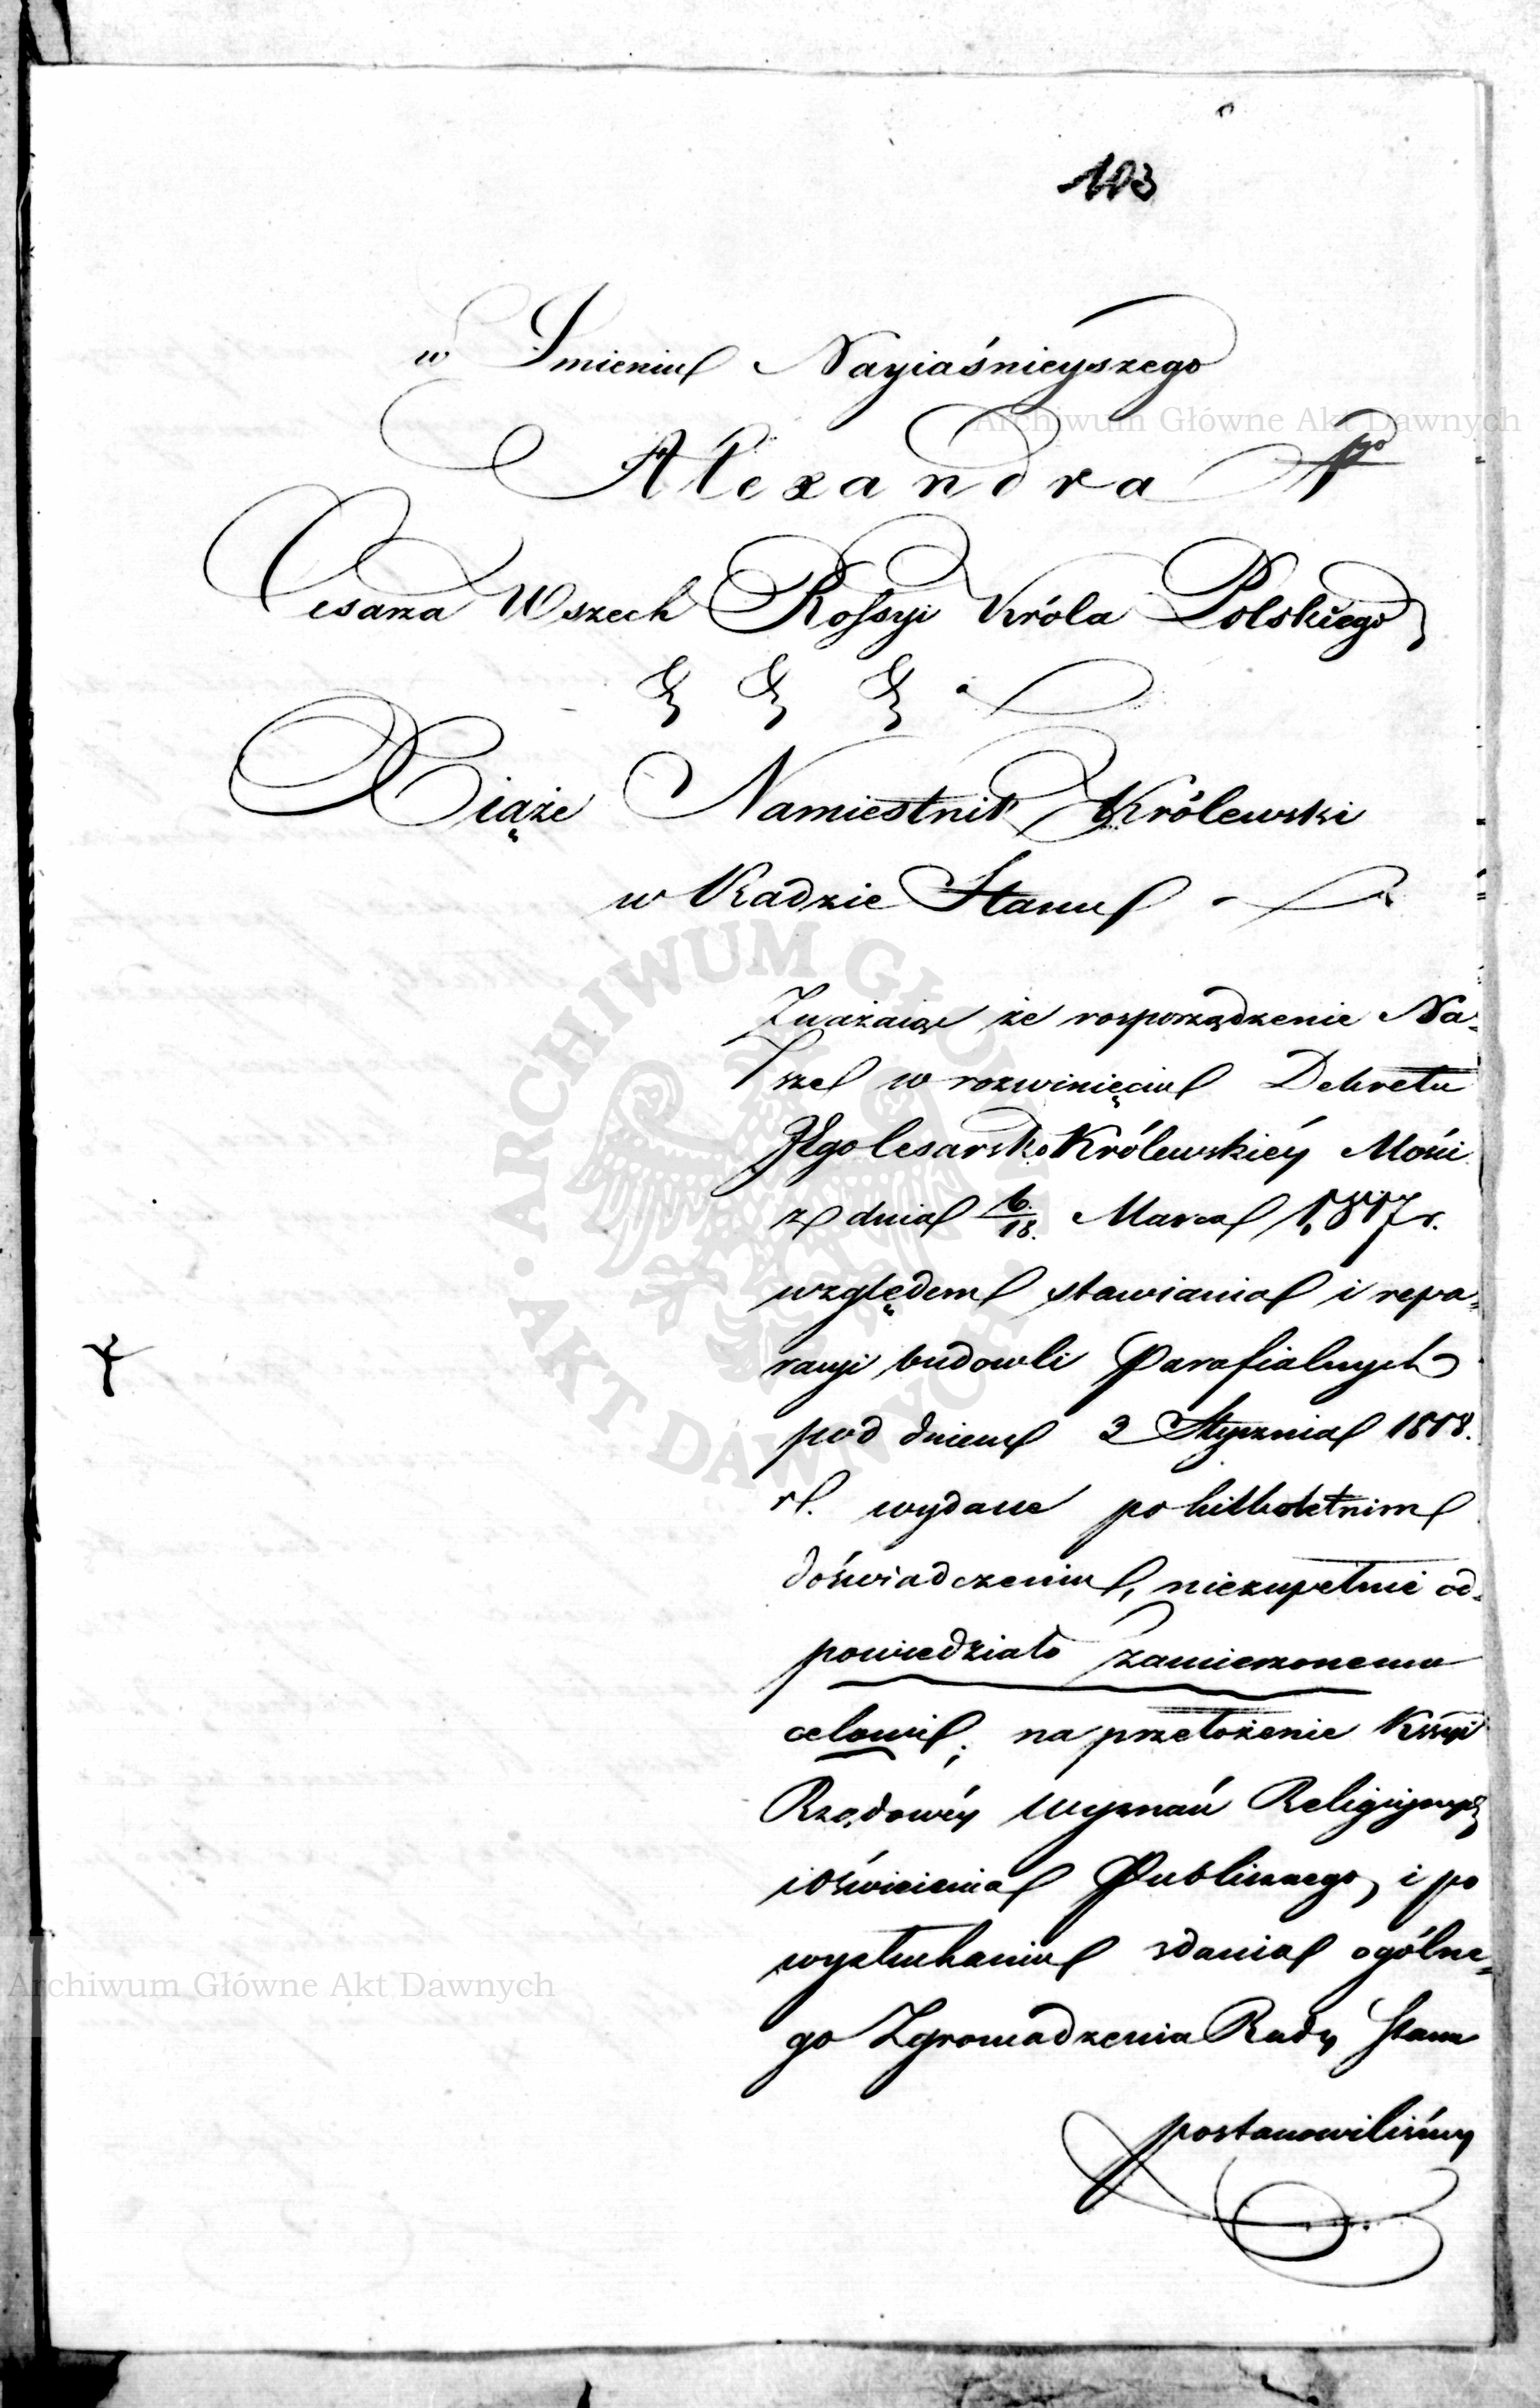 103
w Imieniu Nayiaśnieyszego
Alexandra Igo
Cesarza Wszech Rossyi Króla Polskiego
& & &
Xiąże Namiestnik Królewski
w Radzie Stanu
Zważaiąc że rosporządzenie Na-
sze w rozwinięciu Dekretu
Jego Cesarsko Królewskiéy Mości
z dnia 6/18. Marca 1817 r.
względem stawiania i repa-
racyi budowli Parafialnych
pod dniem 3 Stycznia 1818.
r. wydane po kilkoletnim
doświadczeniu, niezupełnie od-
powiedziało zamierzonemu
celowi; na przełożenie Kmsyi
Rządowéy Wyznań Religijnych
i Oświecenia Publicznego, i po
wysłuchaniu zdania ogólne-
go Zgromadzenia Rady Stanu
postanowiliśmy
Archiwum Główne Akt Dawnych
ARCHIWUM GŁÓWNE · AKT DAWNYCH ·
Archiwum Główne Akt Dawnych